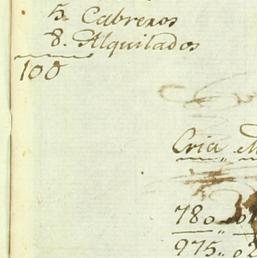 5. Cabreros
8. Alquilados
100
Cria
780
975